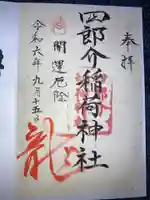 奉拝
四郎介稲荷神社
開運厄除
令和六年九月十五日
龍